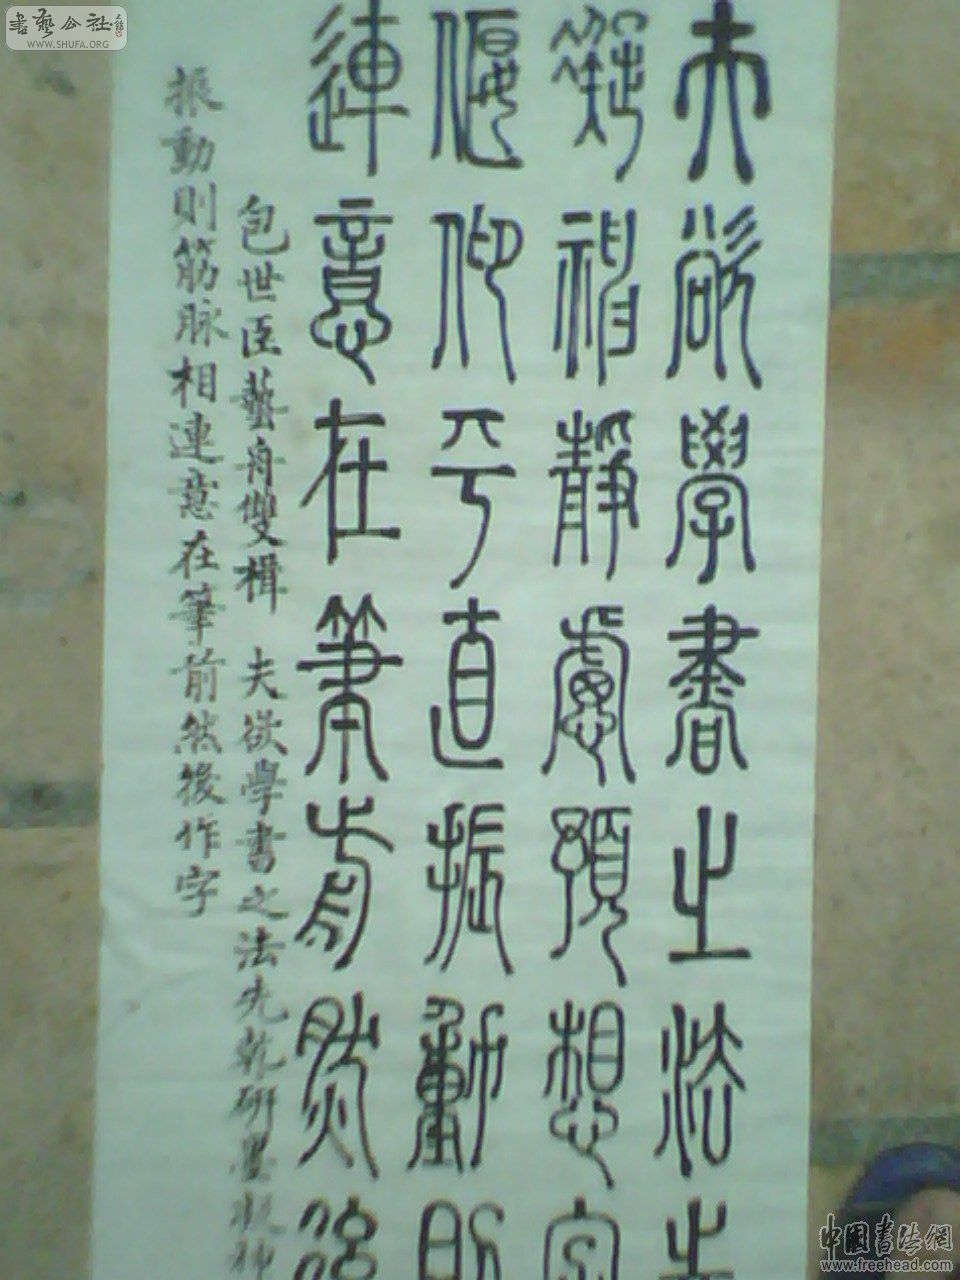 夫欲學書之法先
凝神靜慮預想字
偃仰平直振動則
連意在筆前然後
包世臣藝舟雙楫 夫欲學書之法先乾研墨凝神
振動則筋脉相連意在筆前然後作字
書藝公社
WWW.SHUFA.ORG
中國書法網
www.freehead.com